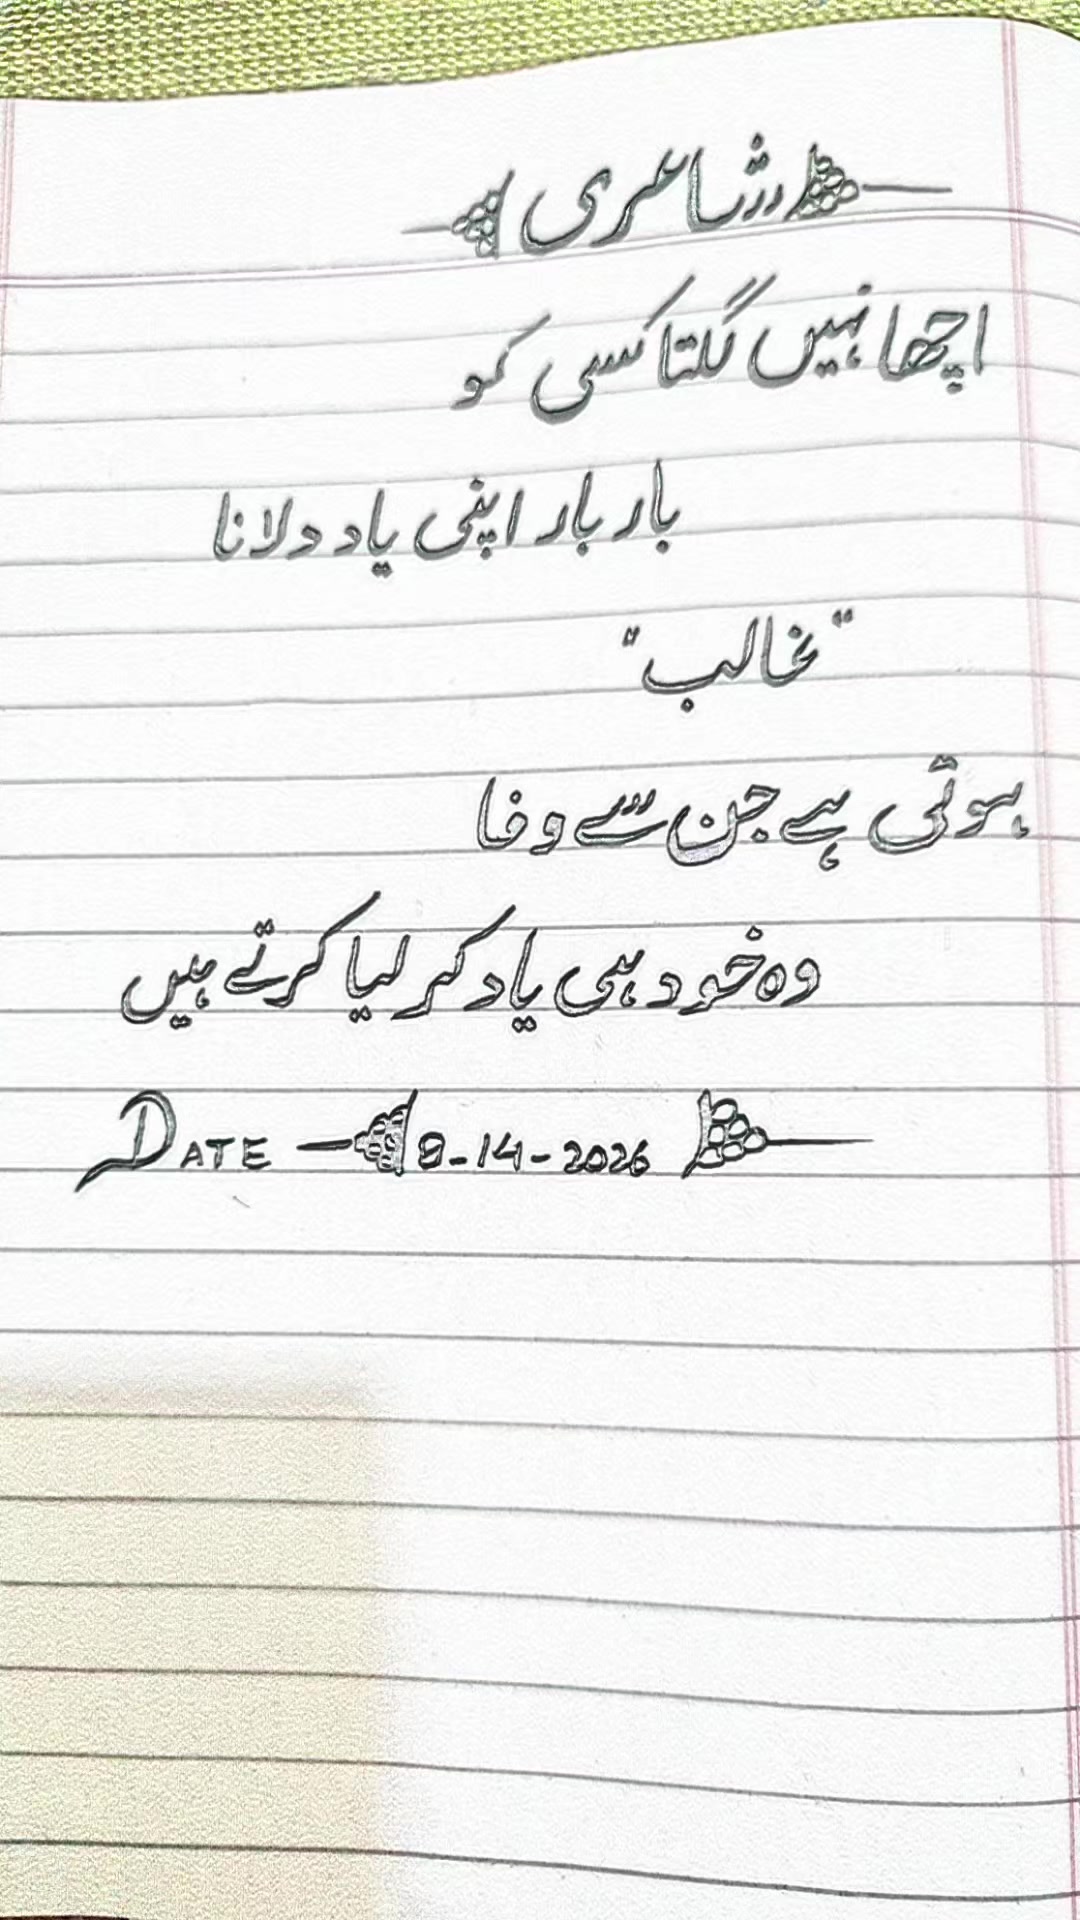 شاعری
اچھا نہیں لگتا کسی کو
بار بار اپنی یاد دلانا
"غالب"
ہوتی ہے جن سے وفا
وہ خود ہی یاد کر لیا کرتے ہیں
DATE 8-14-2026